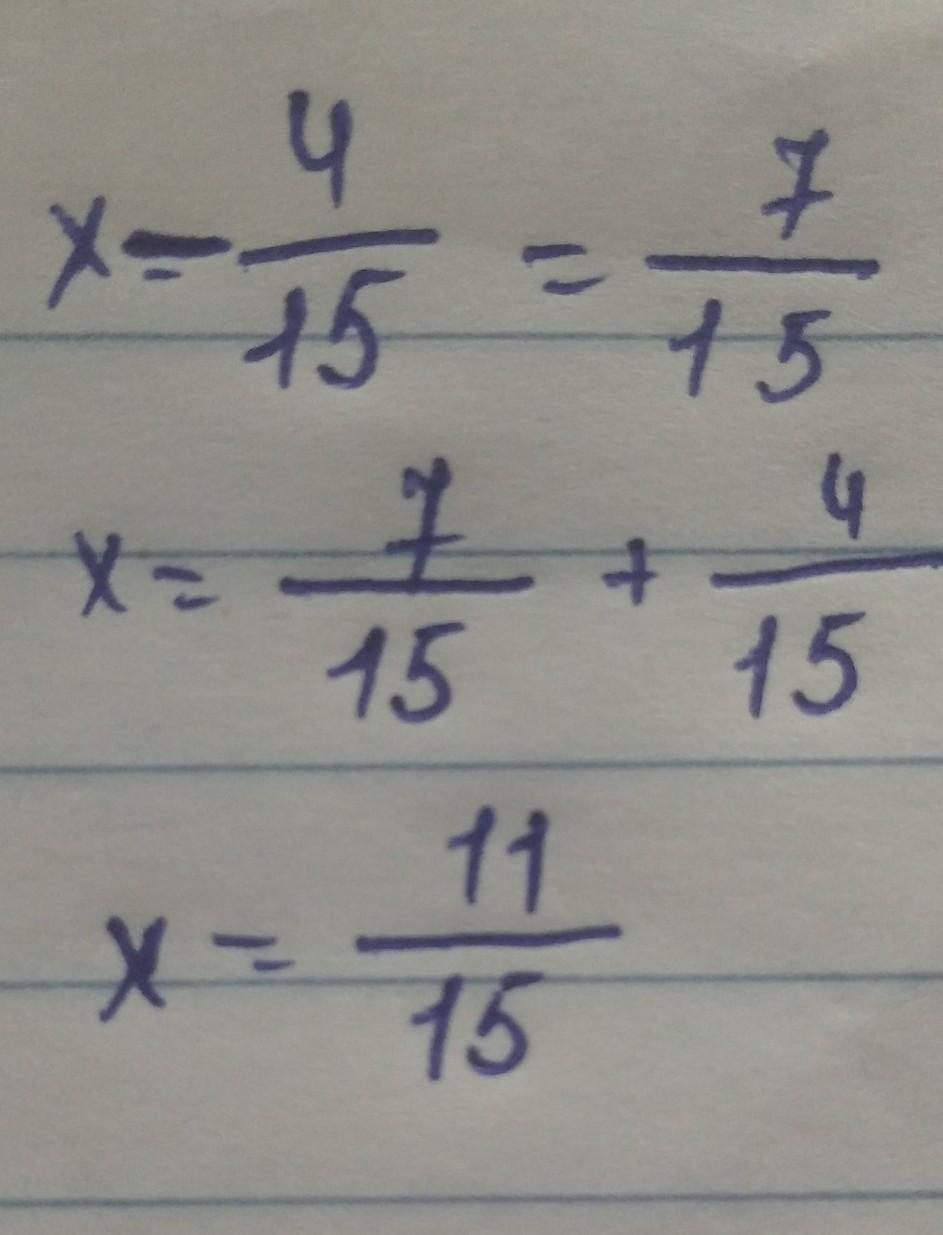 x - 4/15 = 7/15
x = 7/15 + 4/15
x = 11/15